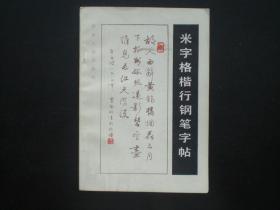 米字格楷行钢笔字帖
故人西辞黄鹤楼烟花三月
下扬州孤帆远影碧空尽
惟见长江天际流